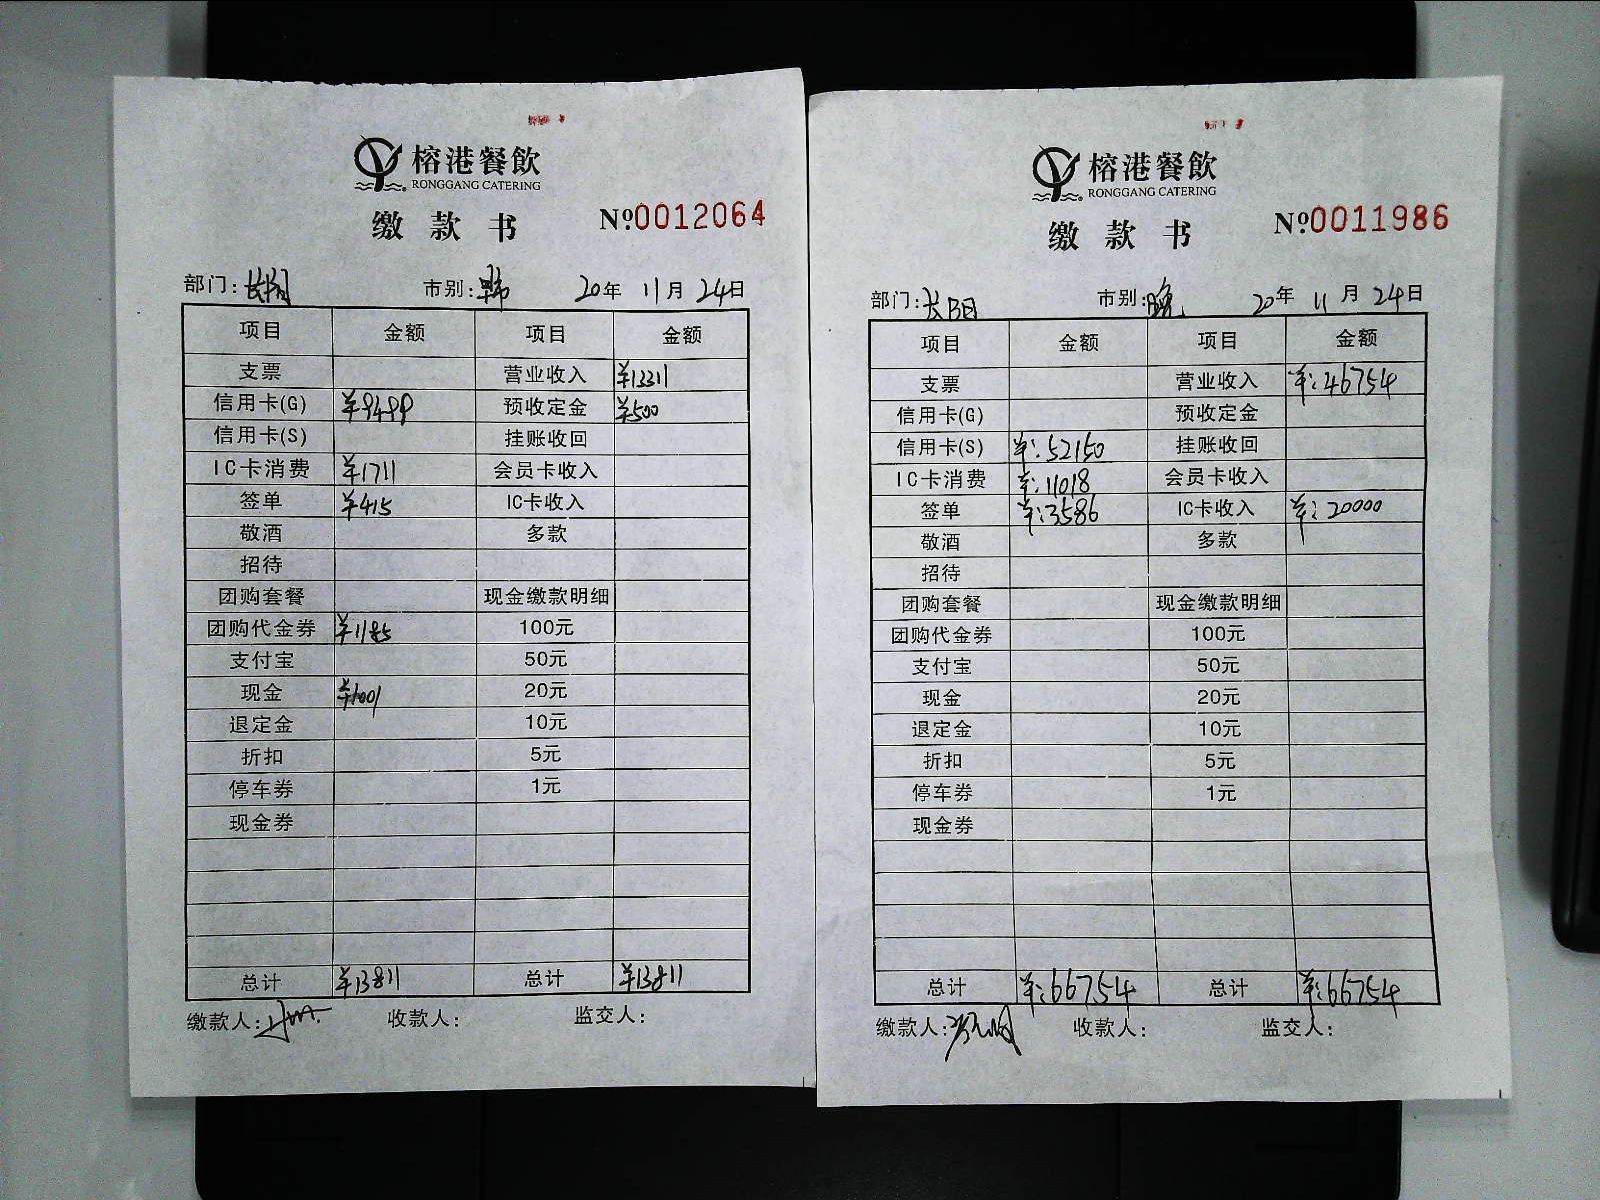 榕港餐飲
RONGGANG CATERING
缴款书 №0012064
部门: 长阳 市别: 早市 20年 11月 24日
项目 金额 项目 金额
支票 营业收入 ¥13311
信用卡(G) ¥9499 预收定金 ¥500
信用卡(S) 挂账收回
IC卡消费 ¥1711 会员卡收入
签单 ¥415 IC卡收入
敬酒 多款
招待
团购套餐 现金缴款明细
团购代金券 ¥1185 100元
支付宝 50元
现金 ¥1001 20元
退定金 10元
折扣 5元
停车券 1元
现金券
总计 ¥13811 总计 ¥13811
缴款人: 收款人: 监交人:
榕港餐飲
RONGGANG CATERING
缴款书 №0011986
部门: 长阳 市别: 晚 20年 11月 24日
项目 金额 项目 金额
支票 营业收入 ¥:46754
信用卡(G) 预收定金
信用卡(S) ¥:52150 挂账收回
IC卡消费 ¥:11018 会员卡收入
签单 ¥:3586 IC卡收入 ¥:20000
敬酒 多款
招待
团购套餐 现金缴款明细
团购代金券 100元
支付宝 50元
现金 20元
退定金 10元
折扣 5元
停车券 1元
现金券
总计 ¥:66754 总计 ¥:66754
缴款人: 收款人: 监交人: